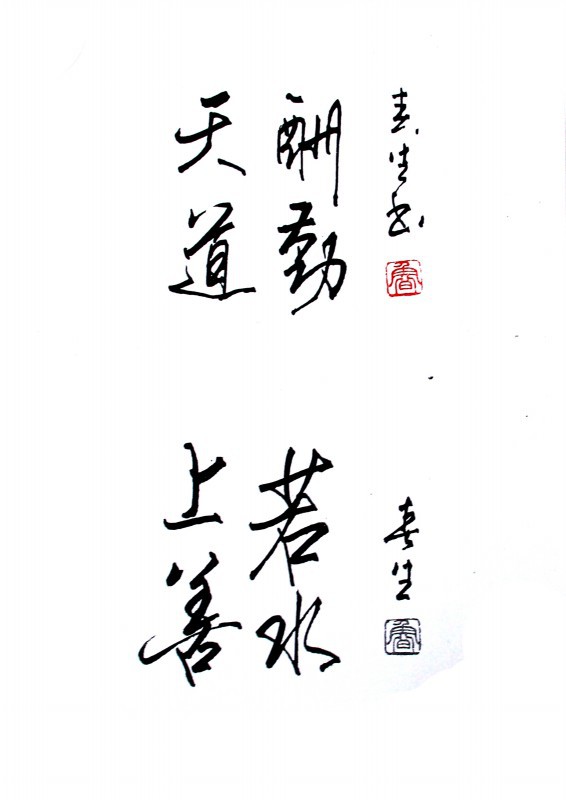 天道
酬勤
春生书
上善
若水
春生